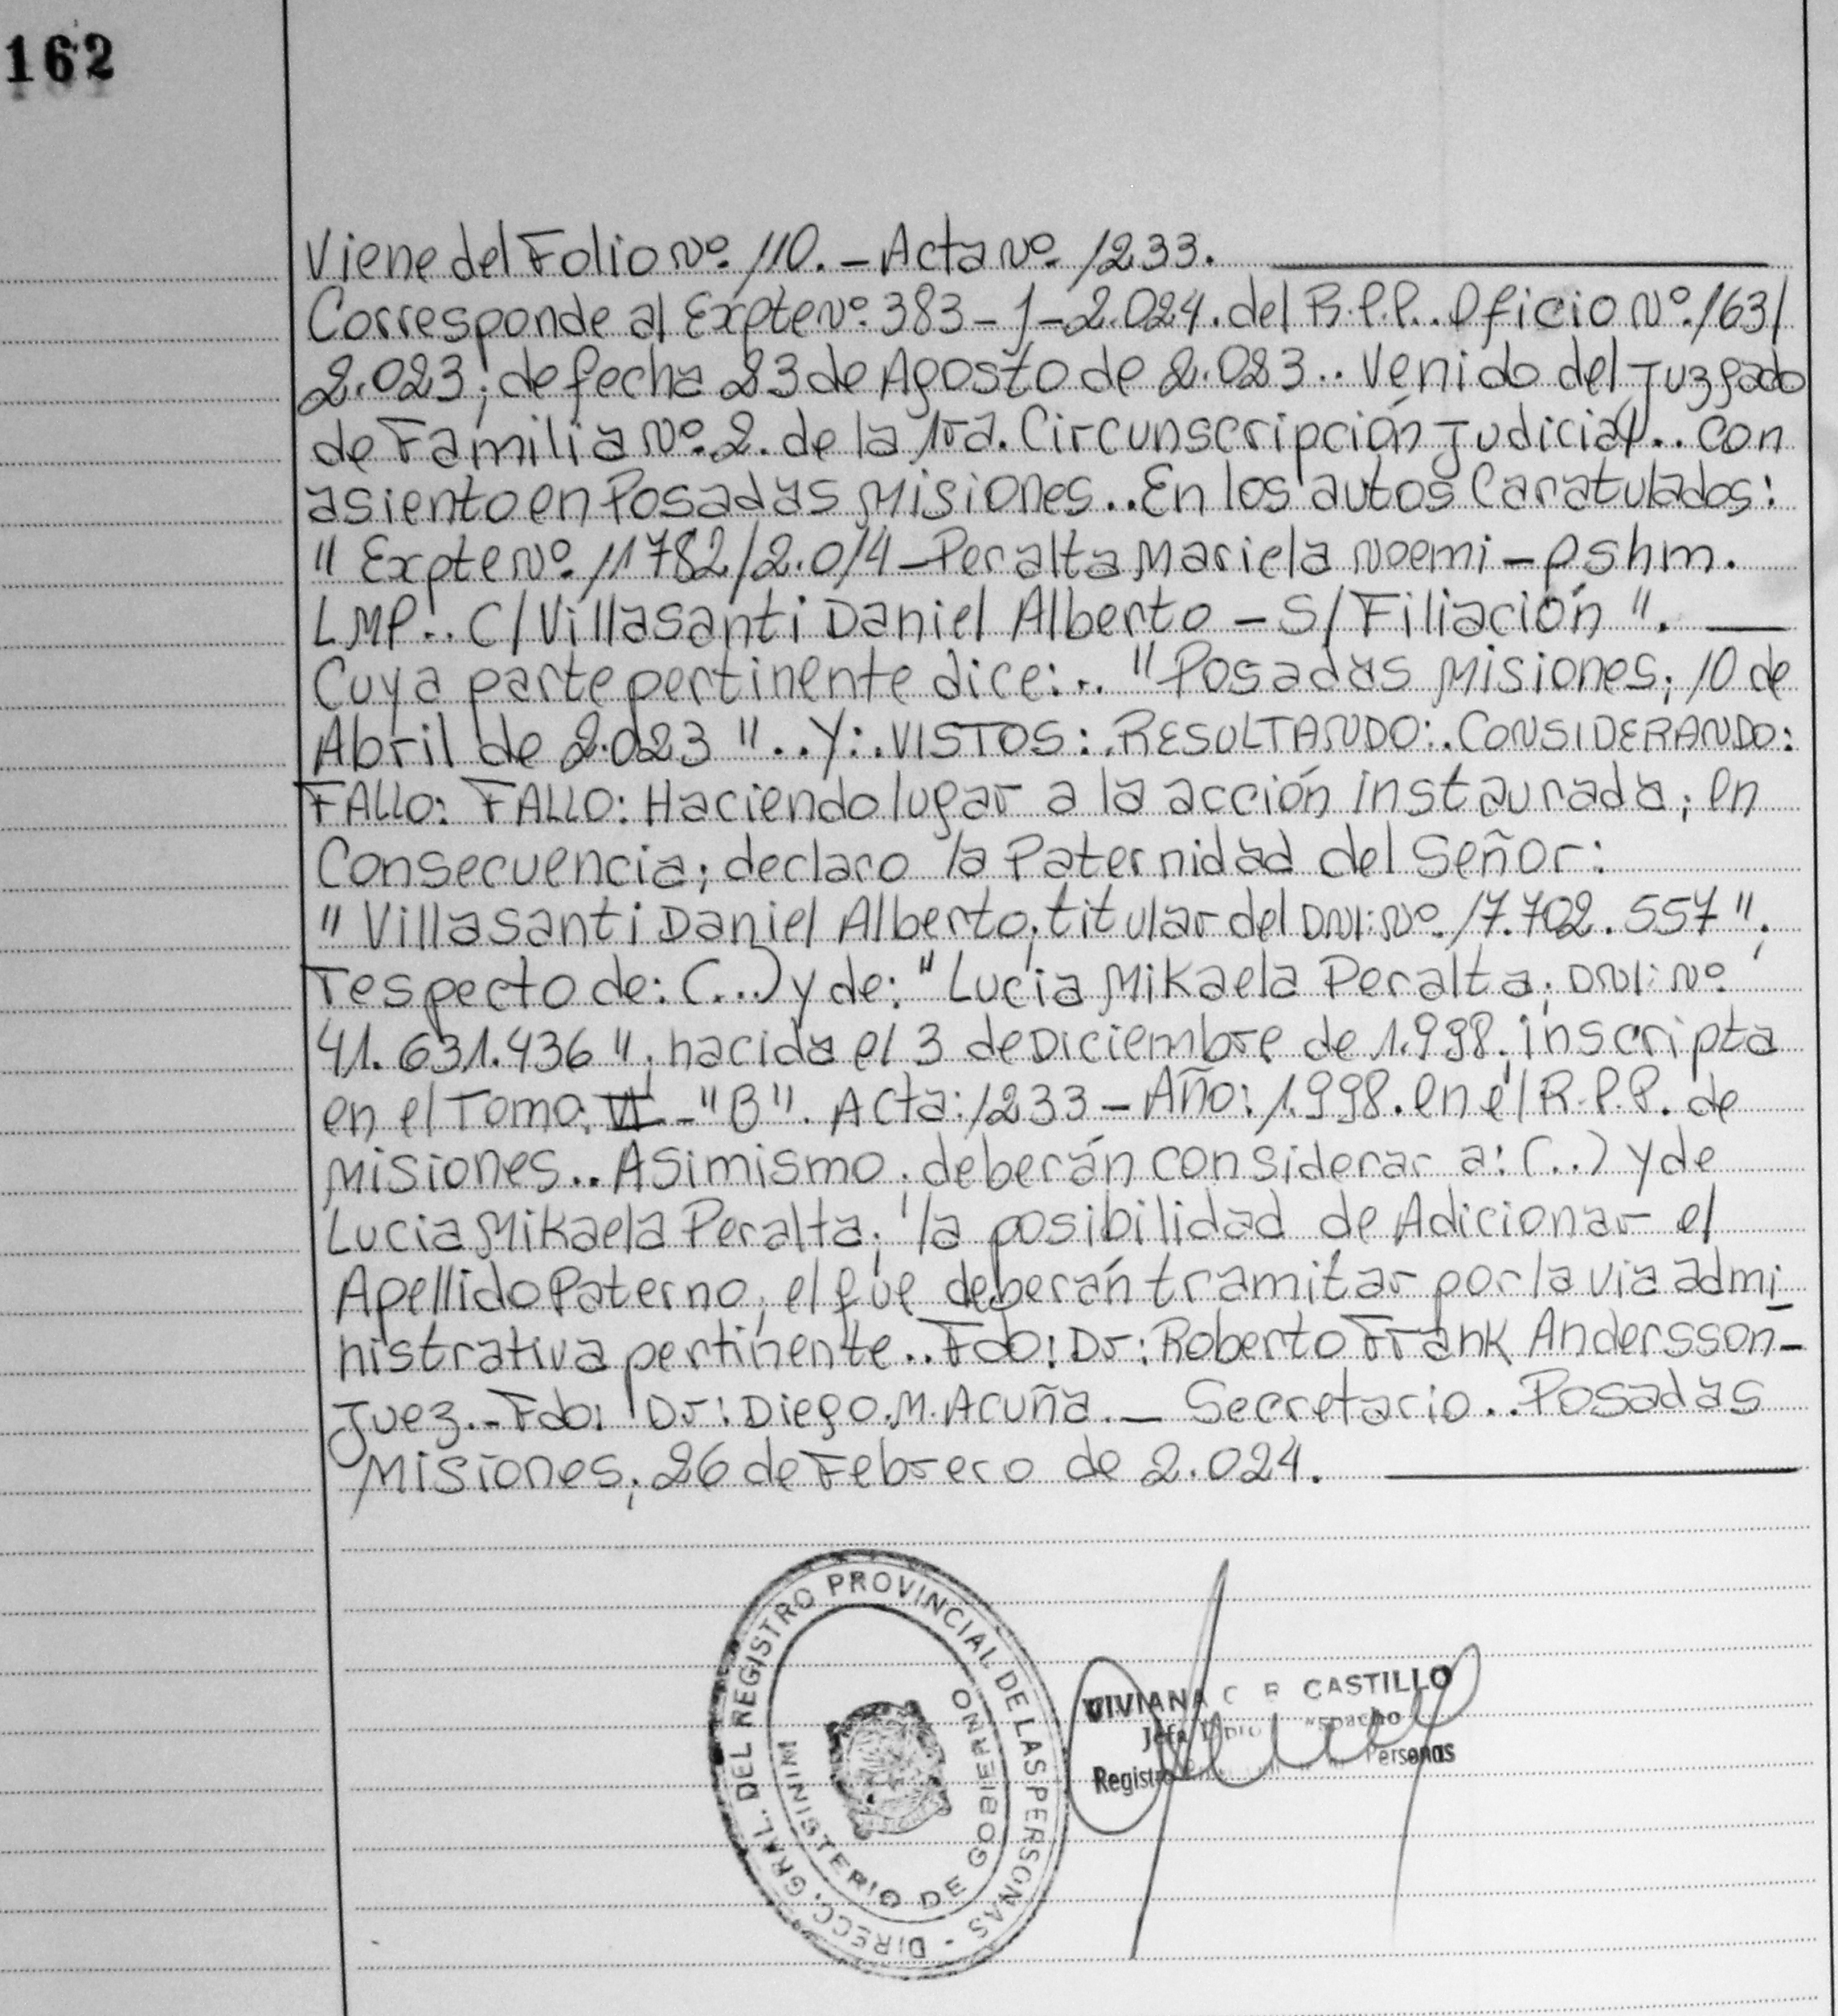 162
Viene del Folio Nº. 110. - Acta Nº. 1233.
Corresponde al Expte Nº. 383 - J - 2.024. del R.P.P.. Oficio Nº. 163/
2.023; de fecha 23 de Agosto de 2.023.. Venido del Juzgado
de Familia Nº. 2. de la 1ra. Circunscripción Judicial.. con
asiento en Posadas Misiones.. En los autos Caratulados:
" Expte Nº. 11782/2.014 - Peralta Mariela Noemi - pshm.
LMP.. C/Villasanti Daniel Alberto - S/Filiación ".
Cuya parte pertinente dice:.. "Posadas Misiones; 10 de
Abril de 2.023 ".. Y:. VISTOS:. RESULTANDO:. CONSIDERANDO:
FALLO: FALLO: Haciendo lugar a la acción instaurada; en
Consecuencia; declaro la Paternidad del Señor:
" Villasanti Daniel Alberto; titular del DNI: Nº. 17.702.557 ";
respecto de: (...) y de: "Lucía Mikaela Peralta; DNI: Nº.
41.631.436 "; nacida el 3 de Diciembre de 1.998; inscripta
en el Tomo: VI - "B". Acta: 1233 - Año: 1.998. en el R.P.P. de
Misiones.. Asimismo. deberán considerar a: (..) y de
Lucia Mikaela Peralta; la posibilidad de Adicionar el
Apellido Paterno; el que deberán tramitar por la via admi
nistrativa pertinente.. Fdo: Dr: Roberto Frank Andersson -
Juez.- Fdo: Dr: Diego.M. Acuña. - Secretario.. Posadas
Misiones; 26 de Febrero de 2.024.
DIRECC. GRAL. DEL REGISTRO PROVINCIAL DE LAS PERSONAS -
MINISTERIO DE GOBIERNO
VIVIANA C R CASTILLO
Jefa
Registro Personas